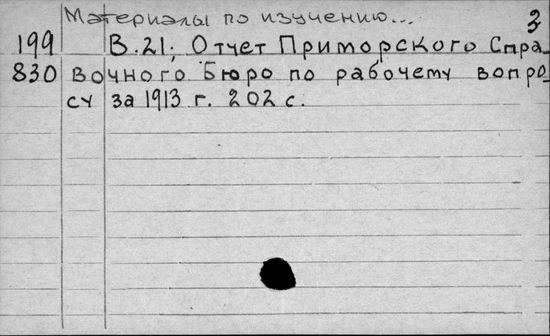 Материалы по изучению... 3
199 В.21; Отчет Приморского Спра-
830 вочного Бюро по рабочему вопро-
су за 1913 г. 202 с.